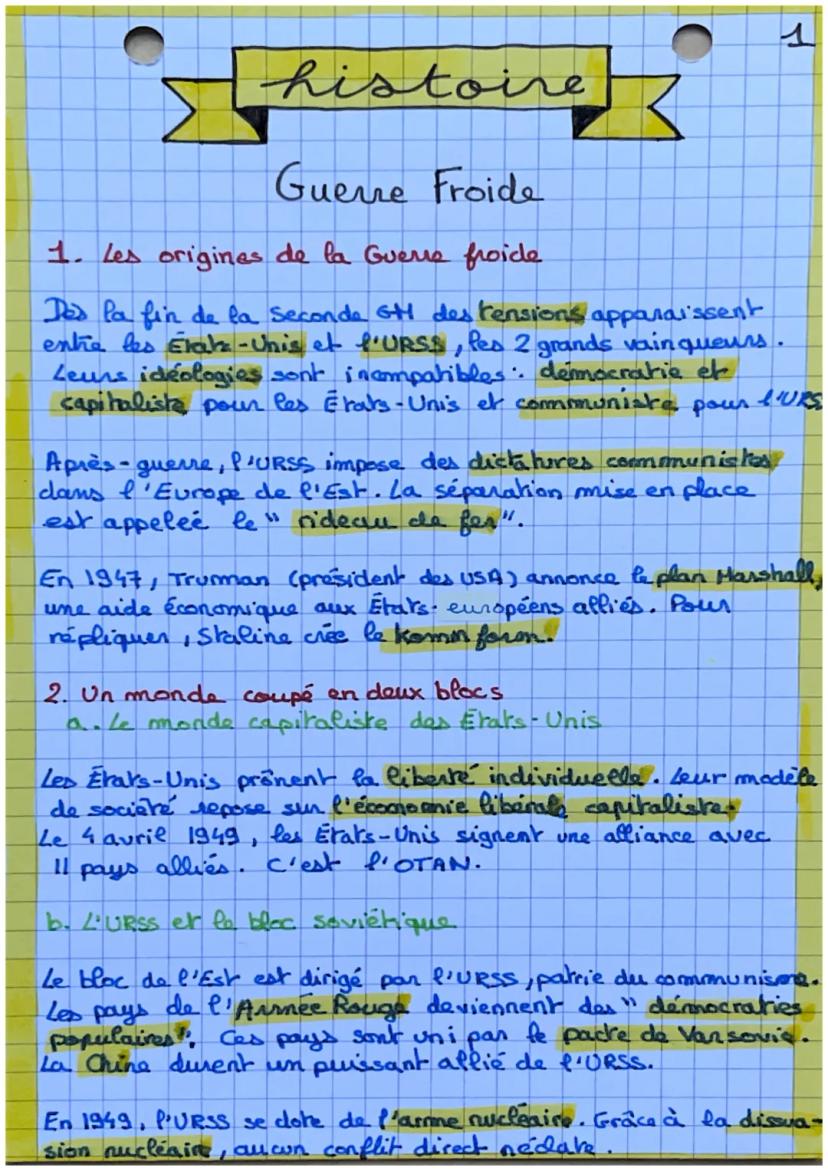 1
histoire
Guerre Froide
1. Les origines de la Guerre froide
Dès la fin de la Seconde GM des tensions apparaissent
entre les États-Unis et l'URSS, les 2 grands vainqueurs.
Leurs idéologies sont incompatibles : démocratie et
capitaliste pour les États-Unis et communiste pour l'URS
Après-guerre, l'URSS impose des dictatures communistes
dans l'Europe de l'Est. La séparation mise en place
est appeleé le "rideau de fer".
En 1947, Truman (président des USA) annonce le plan Marshall,
une aide économique aux États européens alliés. Pour
répliquer, Staline crée le Komin form.
2. Un monde coupé en deux blocs
a. Le monde capitaliste des États-Unis
Les États-Unis prônent la liberté individuelle. Leur modèle
de société repose sur l'économie libérale capitaliste.
Le 4 avril 1949, les États-Unis signent une alliance avec
11 pays alliés. C'est l'OTAN.
b. L'URSS et le bloc soviétique
Le bloc de l'Est est dirigé par l'URSS, patrie du communisme.
Les pays de l'Armée Rouge deviennent des "démocraties
populaires". Ces pays sont uni par le pacte de Varsovie.
La Chine durent un puissant allié de l'URSS.
En 1949, l'URSS se dote de l'arme nucléaire. Grâce à la dissua-
sion nucléaire, aucun conflit direct n'éclate.